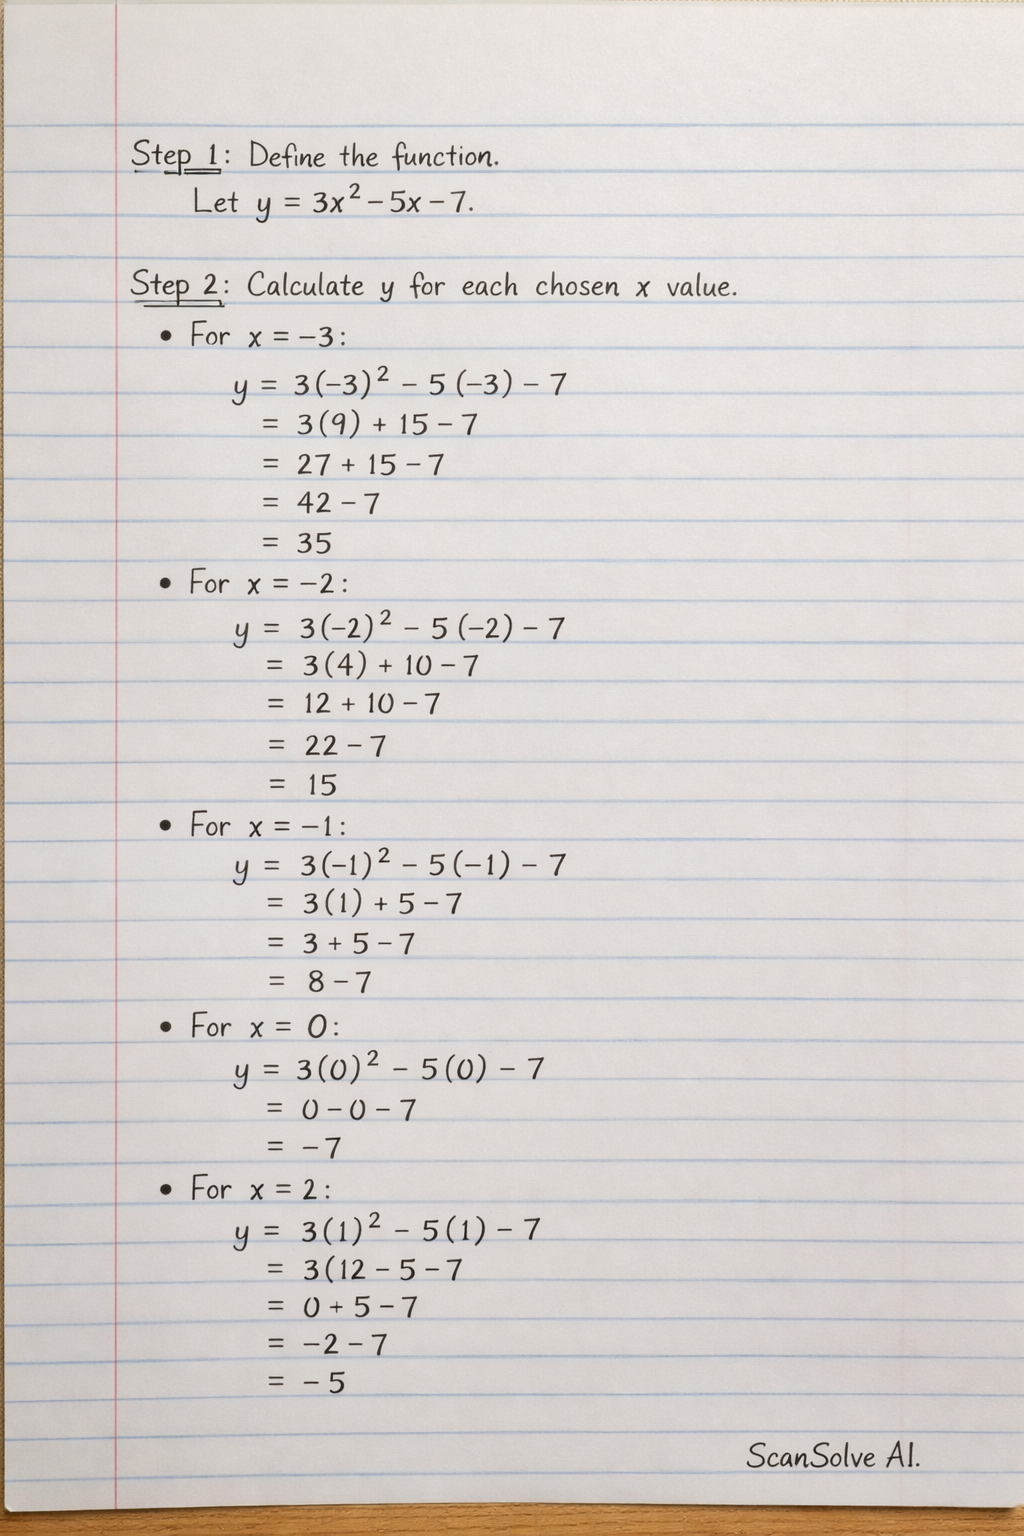 Step 1: Define the function.
Let y = 3x² – 5x – 7.
Step 2: Calculate y for each chosen x value.
• For x = –3:
y = 3(–3)² – 5(–3) – 7
= 3(9) + 15 – 7
= 27 + 15 – 7
= 42 – 7
= 35
• For x = –2:
y = 3(–2)² – 5(–2) – 7
= 3(4) + 10 – 7
= 12 + 10 – 7
= 22 – 7
= 15
• For x = –1:
y = 3(–1)² – 5(–1) – 7
= 3(1) + 5 – 7
= 3 + 5 – 7
= 8 – 7
• For x = 0:
y = 3(0)² – 5(0) – 7
= 0 – 0 – 7
= –7
• For x = 2:
y = 3(1)² – 5(1) – 7
= 3(12 – 5 – 7
= 0 + 5 – 7
= –2 – 7
= –5
ScanSolve AI.